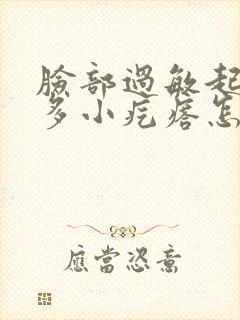 臉部過敏起
多小疙瘩怎
應當恣意